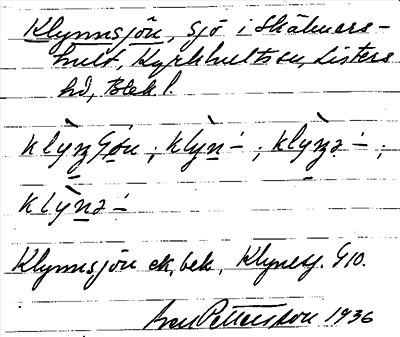 Klynnsjön, sjö i Skälmers-
hult, Kyrkhults sn, Listers
hd, Blek l.
klỳnʒɧọn ; klỳn ̵́ ; klỳnʒə ̵́ ;
klỳnə ̵́
Klynnsjön ek. bek., Klynesj. G10.
Sven Pettersson 1936